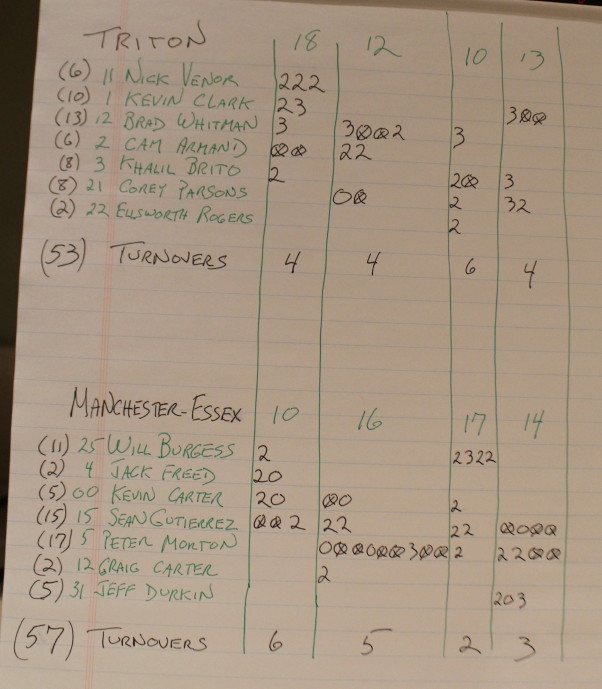 TRITON 18 12 10 13
(6) 11 NICK VENOR 222
(10) 1 KEVIN CLARK 23 3⊗⊗
(13) 12 BRAD WHITMAN 3 3⊗⊗2 3
(6) 2 CAM ARMAND ⊗⊗ 22
(8) 3 KHALIL BRITO 2 2⊗ 3
(8) 21 COREY PARSONS 0⊗ 2 32
(2) 22 ELLSWORTH ROGERS 2
(53) TURNOVERS 4 4 6 4
MANCHESTER-ESSEX 10 16 17 14
(11) 25 WILL BURGESS 2 2322
(2) 4 JACK FREED 20
(5) 00 KEVIN CARTER 20 ⊗0 2
(15) 15 SEAN GUTIERREZ ⊗⊗2 22 22 ⊗0⊗⊗
(17) 5 PETER MORTON 0⊗⊗0⊗⊗3⊗⊗ 2 22⊗⊗
(2) 12 CRAIG CARTER 2
(5) 31 JEFF DURKIN 203
(57) TURNOVERS 6 5 2 3